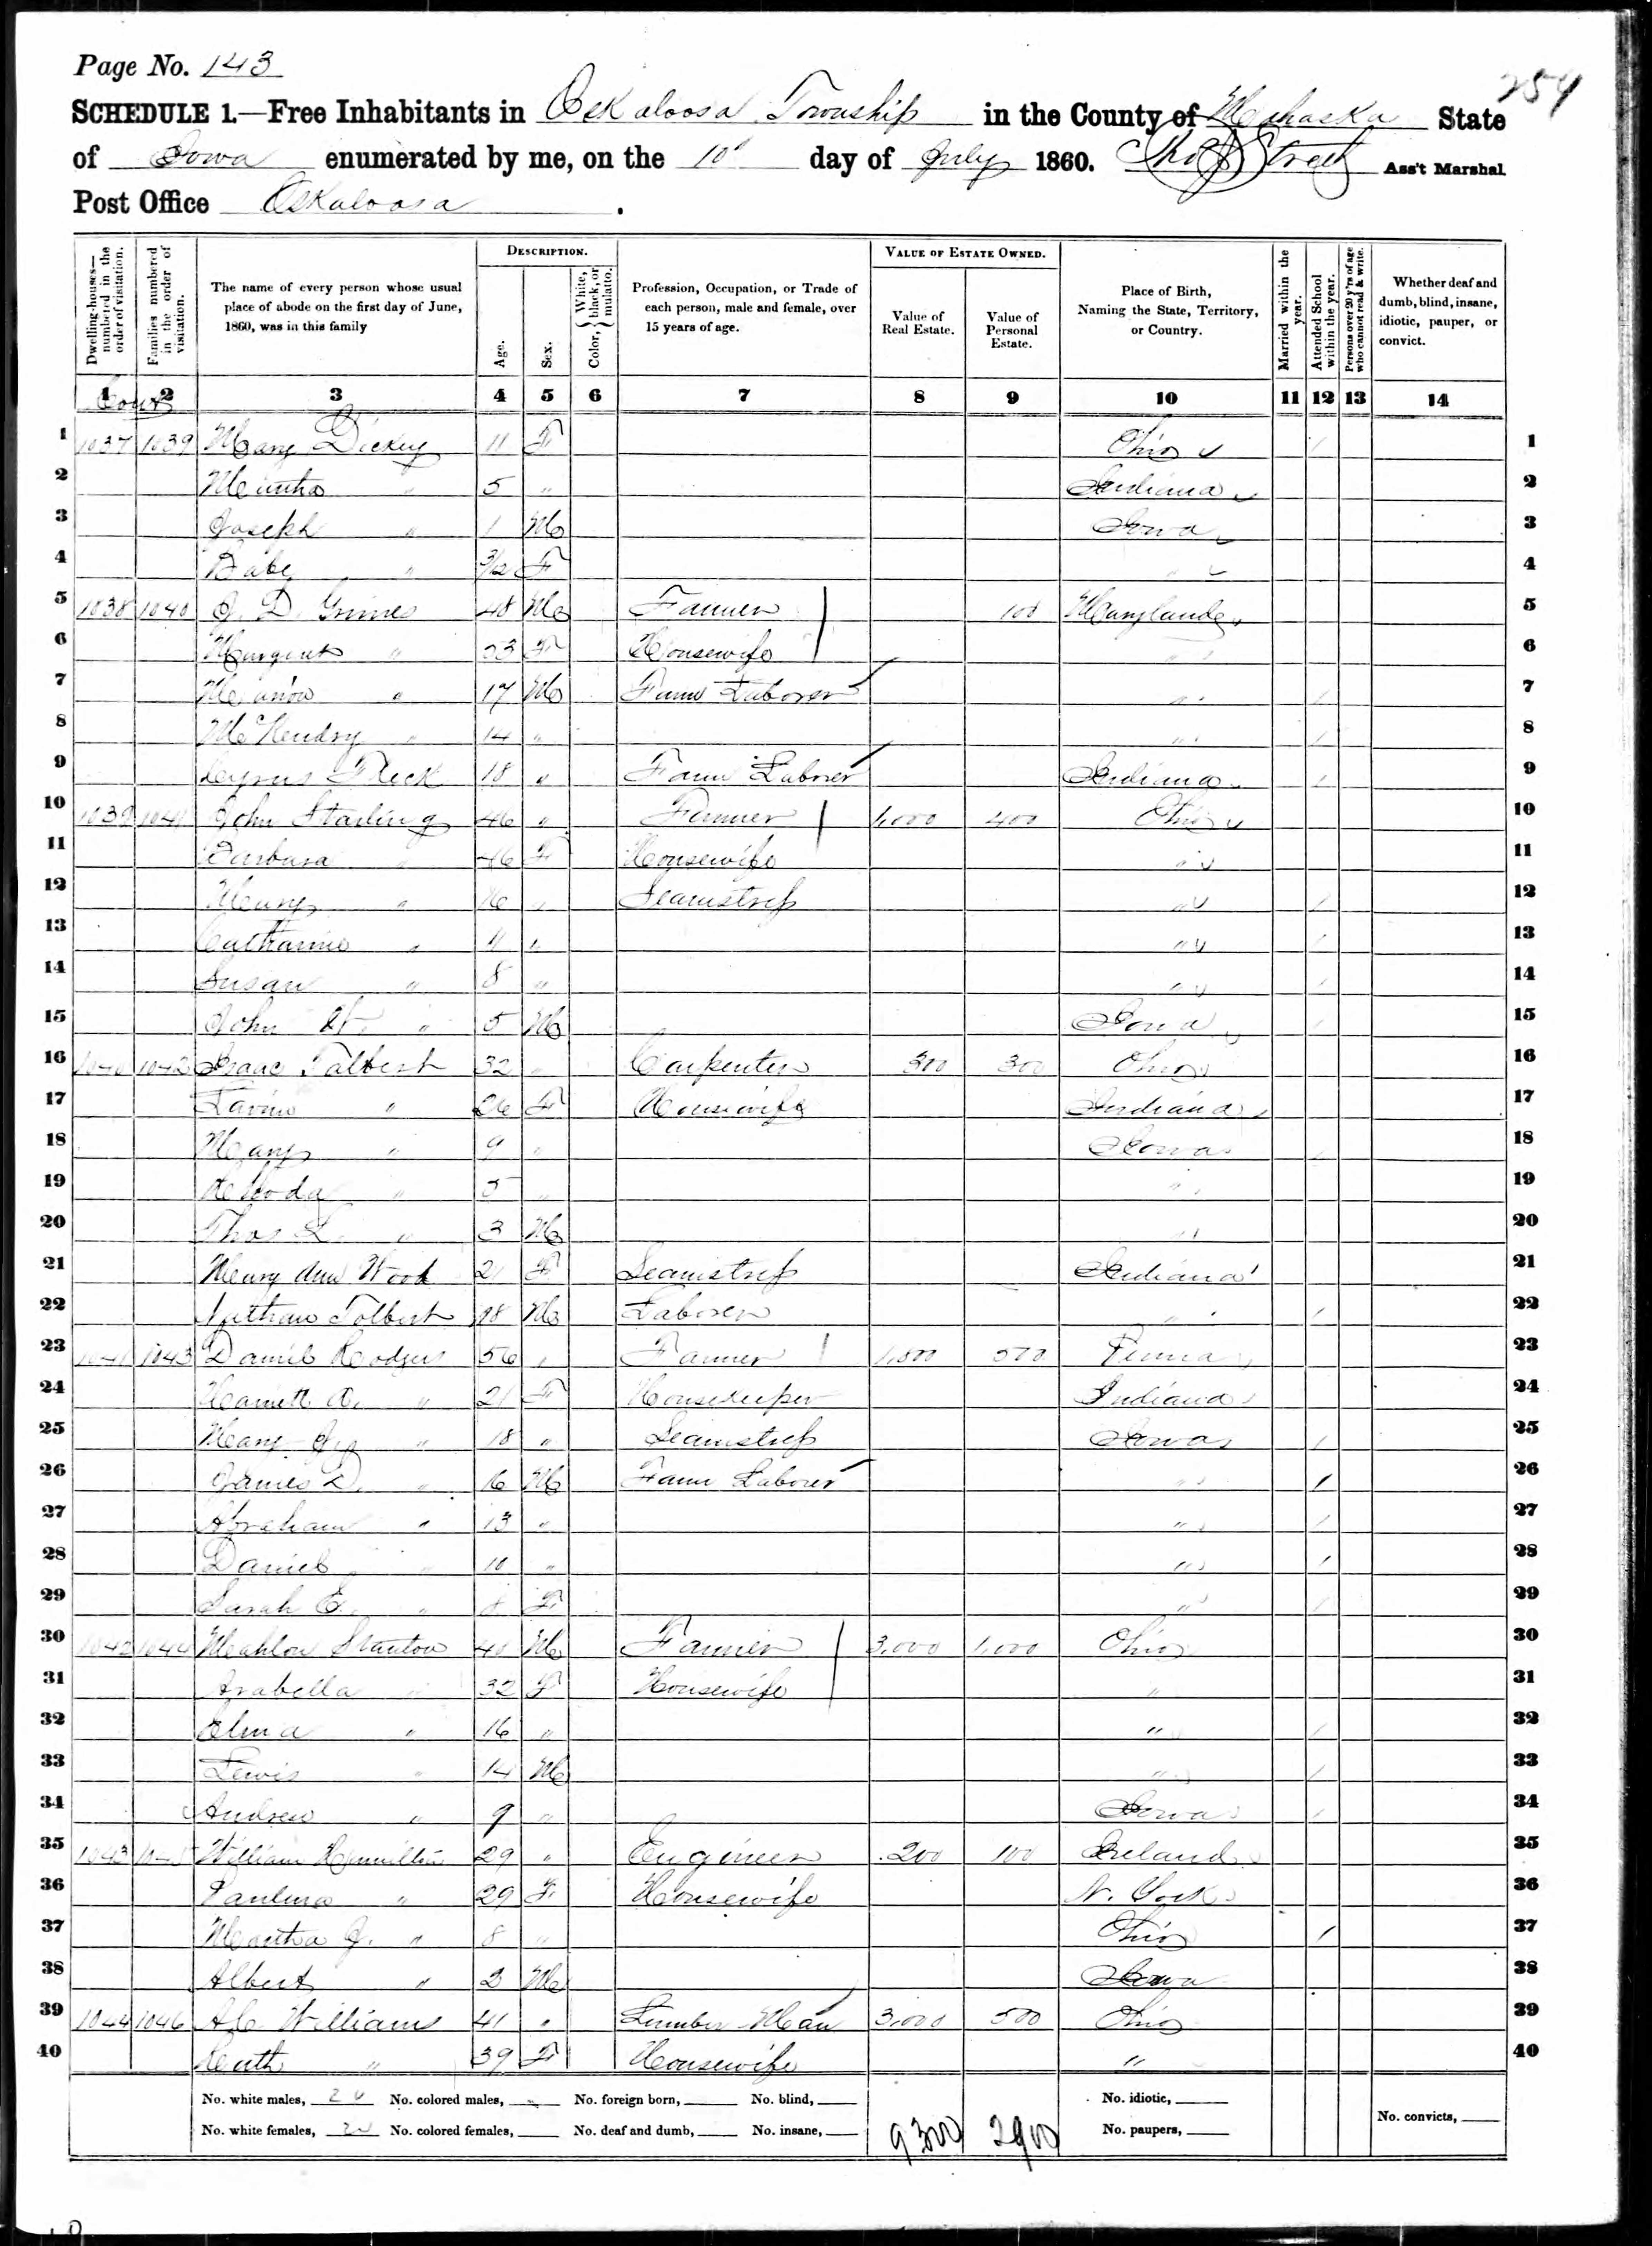 Page No. 143
254
SCHEDULE 1.—Free Inhabitants in Oskaloosa Township in the County of Mahaska State
of Iowa enumerated by me, on the 10" day of July 1860. Thos J Street Ass't Marshal
Post Office Oskaloosa .
Dwelling-houses—numbered in the order of visitation. Families numbered in the order of visitation. The name of every person whose usual place of abode on the first day of June, 1860, was in this family DESCRIPTION. Age. Sex. Color, White, black, or mulatto. Profession, Occupation, or Trade of each person, male and female, over 15 years of age. VALUE OF ESTATE OWNED. Value of Real Estate. Value of Personal Estate. Place of Birth, Naming the State, Territory, or Country. Married within the year. Attended School within the year. Persons over 20 y'rs of age who cannot read & write. Whether deaf and dumb, blind, insane, idiotic, pauper, or convict.
1 2 3 4 5 6 7 8 9 10 11 12 13 14
1 1037 1039 Mary Dickey 11 F Ohio / 1
2 Martha " 5 " Indiana 2
3 Joseph " 1 M Iowa 3
4 Babe " 3/12 F " 4
5 1038 1040 J. D. Grimes 48 M Farmer 100 Maryland 5
6 Margaret " 53 F Housewife " 6
7 Marion " 17 M Farm Laborer " / 7
8 McKendry " 14 " " / 8
9 Cyrus Fleck 18 " Farm Laborer Indiana / 9
10 1039 1041 John Starling 46 " Farmer 1,000 400 Ohio 10
11 Barbara " 46 F Housewife " 11
12 Mary " 16 " Seamstress " / 12
13 Catharine " 11 " " / 13
14 Susan " 8 " " / 14
15 John W. " 5 M Iowa / 15
16 1040 1042 Isaac Talbert 32 " Carpenter 300 300 Ohio 16
17 " 26 F Housewife Indiana 17
18 Mary " 9 " Iowa / 18
19 Rhoda " 5 " " 19
20 Thos L. " 3 M " 20
21 Mary Ann Wood 21 F Seamstress Indiana 21
22 Nathan Tolbert 18 M Laborer " / 22
23 1041 1043 Daniel Rodgers 56 " Farmer 1,800 500 Penna 23
24 Harriett A. " 21 F Housekeeper Indiana 24
25 Mary " 18 " Seamstress Iowa / 25
26 James D. " 16 M Farm Laborer " / 26
27 Abraham " 13 " " / 27
28 Daniel " 10 " " / 28
29 Sarah E. " 8 F " / 29
30 1042 1044 Mahlon Stanton 40 M Farmer 3,000 1,000 Ohio 30
31 Arabella " 32 F Housewife " 31
32 Elma " 16 " " / 32
33 Lewis " 14 M " / 33
34 Andrew " 9 " Iowa / 34
35 1043 1045 William Hamilton 29 " Engineer 200 100 Ireland 35
36 Paulina " 29 F Housewife N. York 36
37 Martha J. " 8 " Ohio / 37
38 Albert " 2 M Iowa 38
39 1044 1046 Williams 41 " Lumber Man 3,000 500 Ohio 39
40 Ruth " 39 F Housewife " 40
No. white males, 20 No. colored males, No. foreign born, No. blind, No. idiotic,
No. white females, 20 No. colored females, No. deaf and dumb, No. insane, 9300 2900 No. paupers, No. convicts,